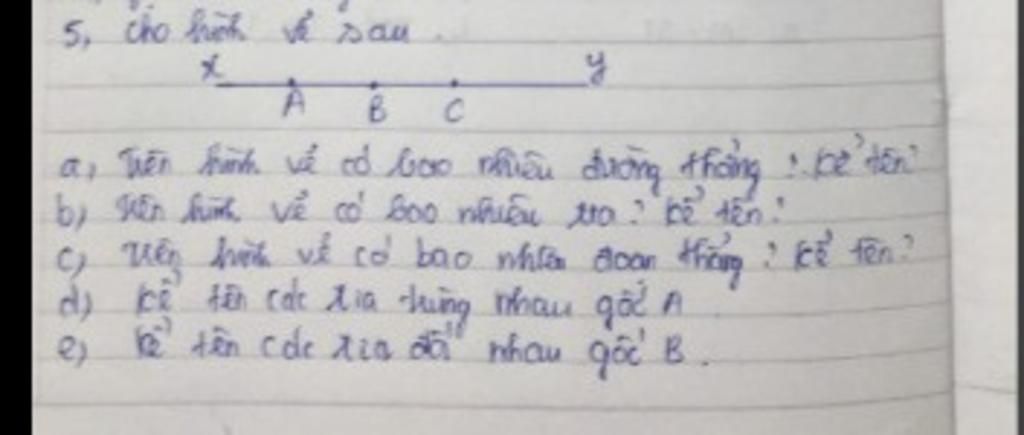 5, cho hình vẽ sau.
x y
A B C
a, Trên hình vẽ có bao nhiêu đường thẳng? kể tên?
b) trên hình vẽ có bao nhiêu tia? kể tên?
c) trên hình vẽ có bao nhiêu đoạn thẳng? kể tên?
d) kể tên các tia trùng nhau gốc A
e) kể tên các tia đối nhau gốc B.